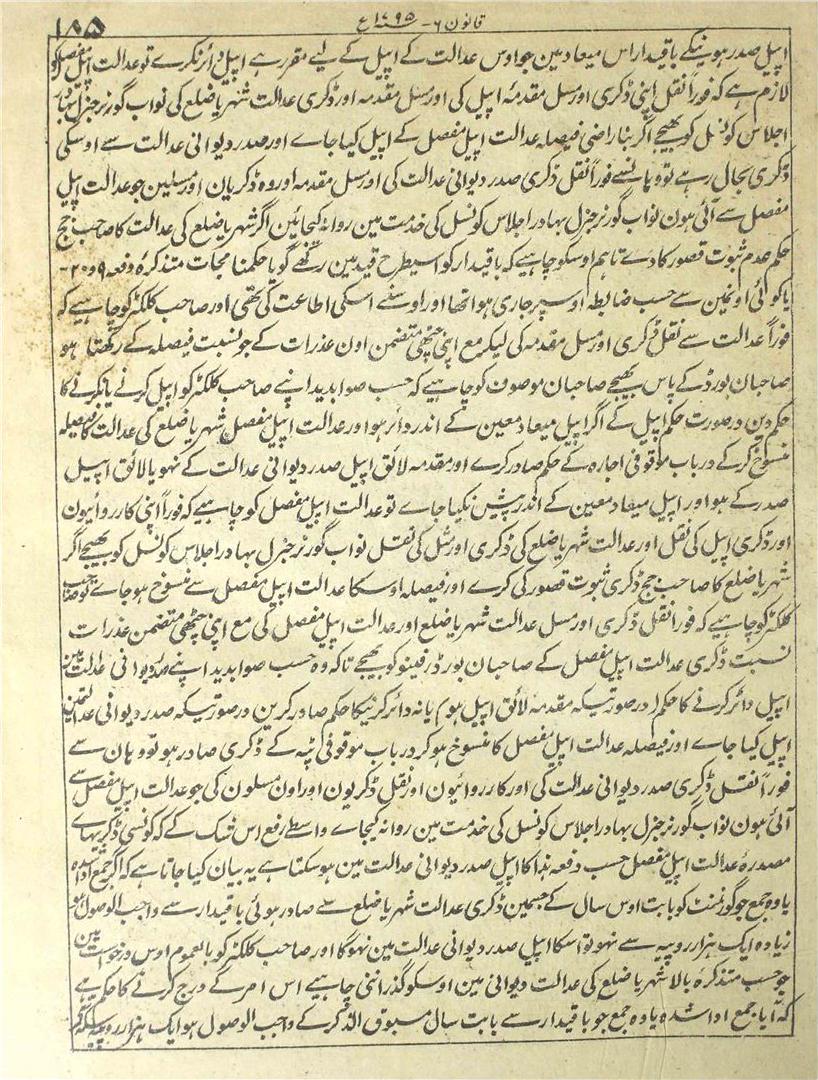 قانون ۶ - ۱۷۹۵ ع
۱۸۵
اپیل صدر ہونیکے باقیدار اس میعاد مین جو اوس عدالت کے اپیل کے لیے مقرر ہے اپیل دائر نکرے تو عدالت اپیل مفصل کو
لازم ہے کہ فوراً نقل اپنی ڈکری اور مسل مقدمۂ اپیل کی اور مسل مقدمہ اور ڈکری عدالت شہر یا ضلع کی نواب گورنر جنرل بہادر
اجلاس کونسل کو بھیجے اگر بناراضی فیصلہ عدالت اپیل مفصل کے اپیل کیا جاے اور صدر دیوانی عدالت سے اوسکی
ڈکری بحال رہے تو وہانسے فوراً نقل ڈکری صدر دیوانی عدالت کی اور مسل مقدمہ اور وہ ڈکریان اور مسلین جو عدالت اپیل
مفصل سے آئی ہون نواب گورنر جنرل بہادر اجلاس کونسل کی خدمت مین روانہ کیجائین اگر شہر یا ضلع کی عدالت کا صاحب جج
حکم عدم ثبوت قصور کا دے تاہم اوسکو چاہیے کہ باقیدار کو اسیطرح قید مین رکھے گویا حکمنامجات متذکرۂ دفعہ ۹ و ۲۰-
یا کوئی اونمین سے حسب ضابطہ اوسپر جاری ہوا تھا اور اوسنے اسکی اطاعت کی تھی اور صاحب کلکٹر کو چاہیے کہ
فوراً عدالت سے نقل ڈکری اور مسل مقدمہ کی لیکر مع اپنی چٹھی متضمن اون عذرات کے جو بنسبت فیصلہ کے رکھتا ہو
صاحبان بورڈ کے پاس بھیجے صاحبان موصوف کو چاہیے کہ حسب صوابدید اپنے صاحب کلکٹر کو اپیل کرنے یا نکرنے کا
حکم دین درصورت حکم اپیل کے اگر اپیل میعاد معین کے اندر دائر ہو اور عدالت اپیل مفصل شہر یا ضلع کی عدالت کا فیصلہ
منسوخ کرکے درباب موقوفی اجارہ کے حکم صادر کرے اور مقدمہ لائق اپیل صدر دیوانی عدالت کے نہو یا لائق اپیل
صدر کے ہو اور اپیل میعاد معین کے اندر پیش نکیا جاے تو عدالت اپیل مفصل کو چاہیے کہ فوراً اپنی کارروائیون
اور ڈکری اپیل کی نقل اور عدالت شہر یا ضلع کی ڈکری اور مسل کی نقل نواب گورنر جنرل بہادر اجلاس کونسل کو بھیجے اگر
شہر یا ضلع کا صاحب جج ڈکری ثبوت قصور کی کرے اور فیصلہ اوسکا عدالت اپیل مفصل سے منسوخ ہو جاے تو صاحب
کلکٹر کو چاہیے کہ فوراً نقل ڈکری اور مسل عدالت شہر یا ضلع اور عدالت اپیل مفصل کی مع اپنی چٹھی متضمن عذرات
نسبت ڈکری عدالت اپیل مفصل کے صاحبان بورڈ رفینو کو بھیجے تاکہ وہ حسب صوابدید اپنے صدر دیوانی عدالت مین
اپیل دائر کرنے کا حکم (درصورتیکہ مقدمہ لائق اپیل ہو) یا نہ دائر کرنیکا حکم صادر کرین درصورتیکہ صدر دیوانی عدالت مین
اپیل کیا جاے اور فیصلہ عدالت اپیل مفصل کا منسوخ ہوکر درباب موقوفی پٹہ کے ڈکری صادر ہو تو وہان سے
فوراً نقل ڈکری صدر دیوانی عدالت کی اور کارروائیون اور نقل ڈکریون اور اون مسلون کی جو عدالت اپیل مفصل سے
آئی ہون نواب گورنر جنرل بہادر اجلاس کونسل کی خدمت مین روانہ کیجاے واسطے رفع اس شک کے کہ کونسی ڈکریہاے
مصدرۂ عدالت اپیل مفصل حسب دفعہ ہذا کا اپیل صدر دیوانی عدالت مین ہوسکتا ہے یہ بیان کیا جاتا ہے کہ اگر جمع ادا شدہ
یا وہ جمع جو گورنمنٹ کو بابت اوس سال کے جسمین ڈکری عدالت شہر یا ضلع سے صادر ہوئی باقیدار سے واجب الوصول ہو
زیادہ ایک ہزار روپیہ سے نہو تو اسکا اپیل صدر دیوانی عدالت مین نہوگا اور صاحب کلکٹر کو بالعموم اوس درخواست مین
جو حسب متذکرۂ بالا شہر یا ضلع کی عدالت دیوانی مین اوسکو گذراننی چاہیے اس امر کے درج کرنے کا حکم ہے
کہ آیا جمع ادا شدہ یا وہ جمع جو باقیدار سے بابت سال مسبوق الذکر کے واجب الوصول ہو ایک ہزار روپیہ